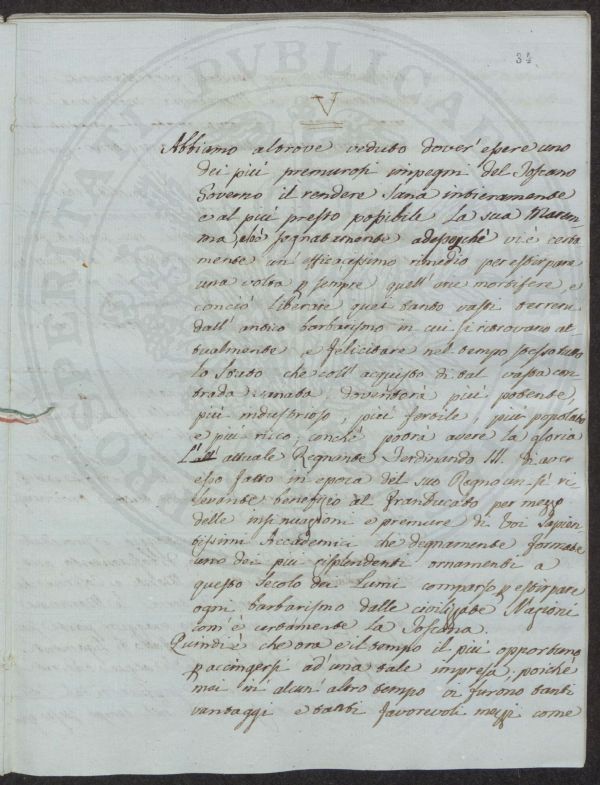 32
V
Abbiamo altrove veduto dover' essere uno
dei più premurosi impegni del Toscano
Governo il rendere sana intieramente
e al più presto possibile la sua Marem-
ma, ciò segnatamente adessoché vi è certa
mente un' efficacissimo rimedio per estirpare
una volta p sempre quell' aree mortifere, e
conciò liberare quei tanto vasti terreni
dall' antico barbarismo in cui si ritrovano at
tualmente e felicitare nel tempo stesso tutto
lo Stato che coll' acquisto di tal vasta con
trada sanata, doventerà più potente,
più industrioso, più fertile, più popolato
e più ricco; conché potrà avere la gloria
L' attuale Regnante Ferdinando III. di aver
esso fatto in epoca del suo Regno un sì ri
levante beneficio al Granducato per mezzo
delle insinuazioni e premure di Voi Sapien
tissimi Accademici che degnamente formate
uno dei più risplendenti ornamenti a
questo Secolo dei Lumi comparso p estirpare
ogni barbarismo dalle civilizzate Nazioni
com' è certamente la Toscana.
Quindi è che ora è il tempo il più opportuno
p accingersi ad' una tale impresa; poiché
mai in' alcun' altro tempo vi furono tanti
vantaggi e tanti favorevoli mezzi come
PROSPERITATI PUBLICAE